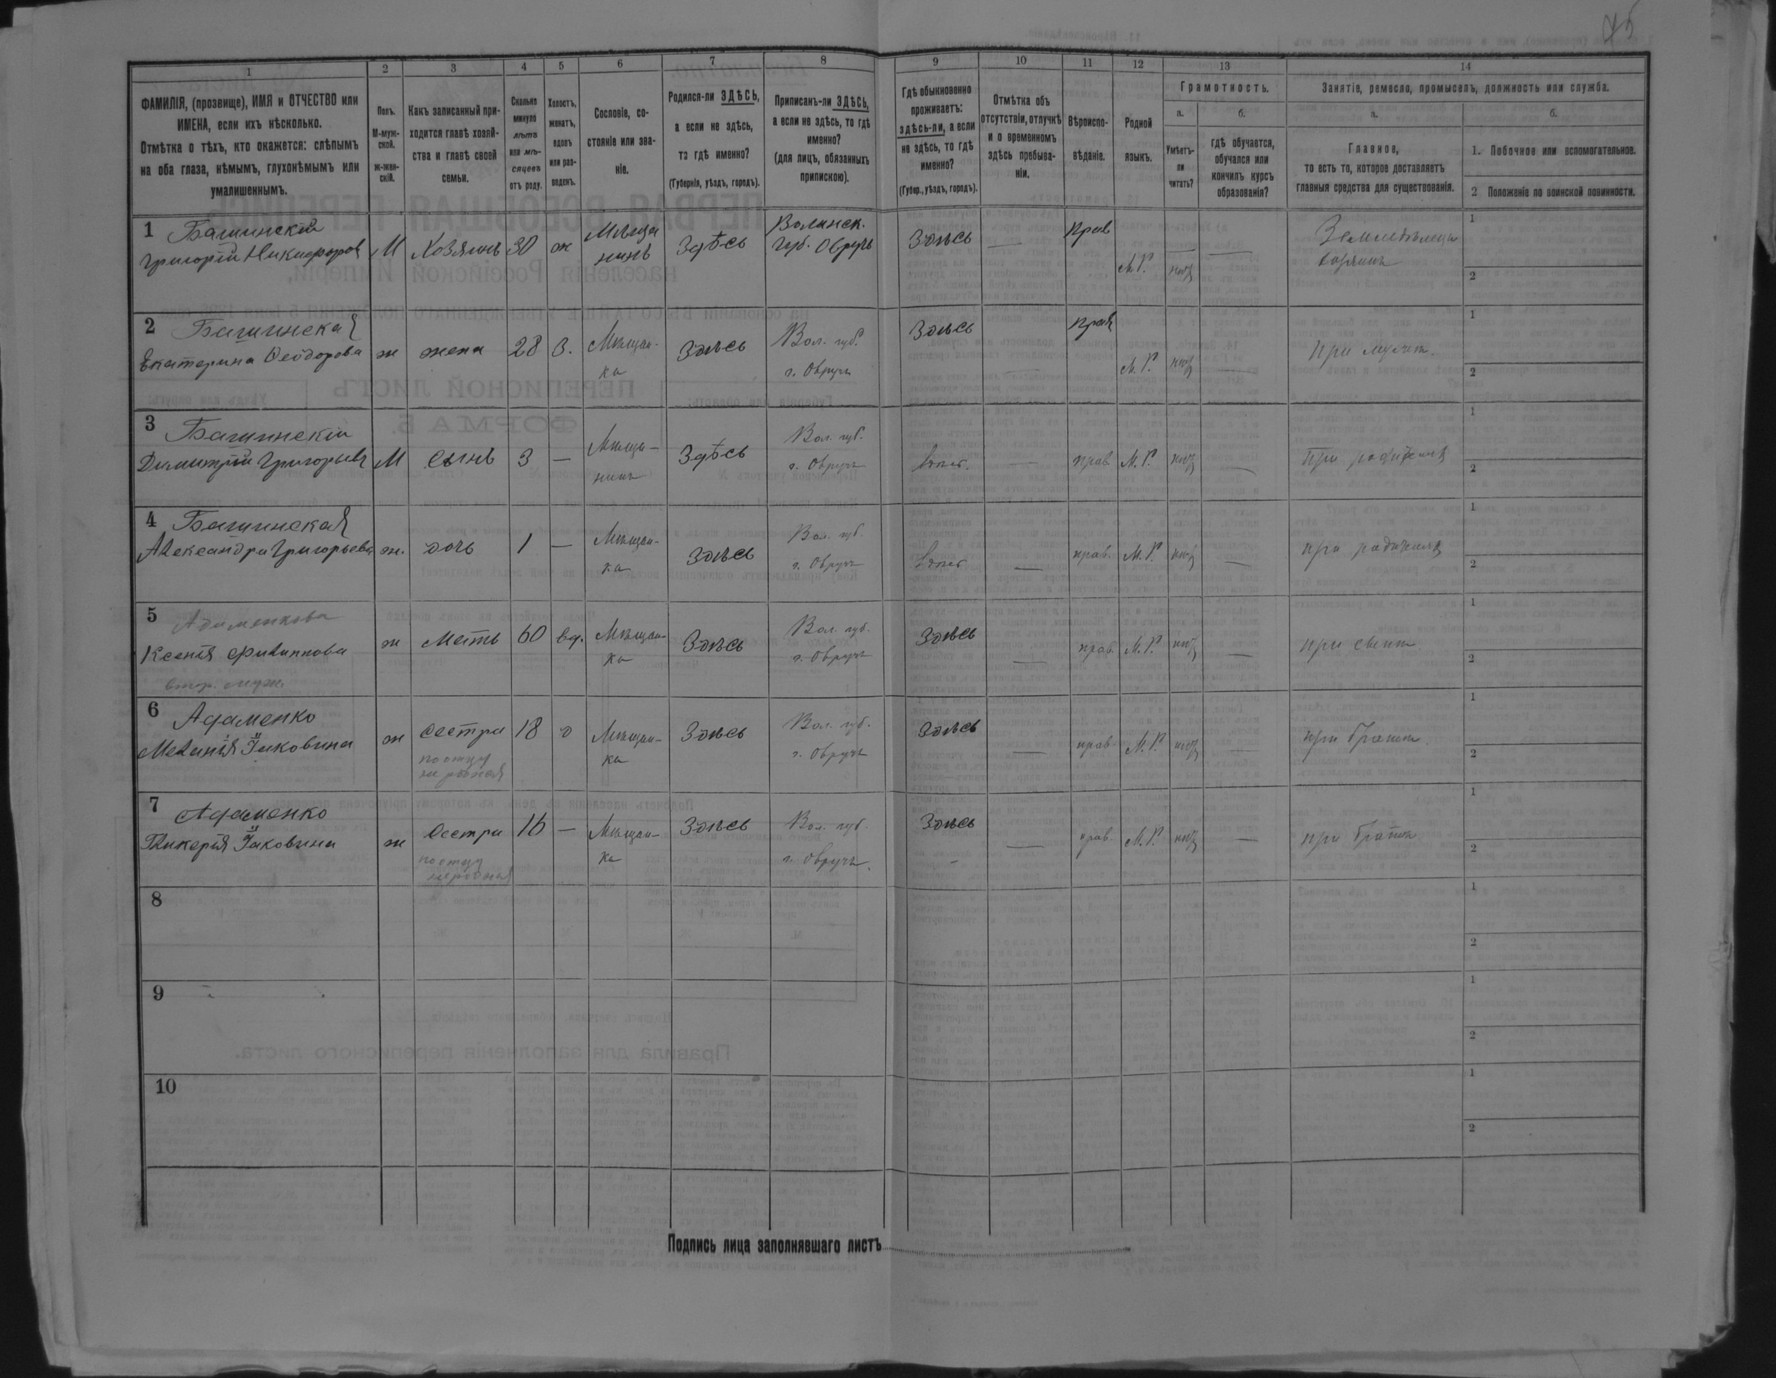 95
1
2
3
4
5
6
7
8
9
10
11
12
13
14
ФАМИЛІЯ, (прозвище), ИМЯ и ОТЧЕСТВО или
ИМЕНА, если ихъ нѣсколько.
Отмѣтка о тѣхъ, кто окажется: слѣпымъ
на оба глаза, нѣмымъ, глухонѣмымъ или
умалишеннымъ.
Полъ.
М-муж-
ской.
ж-жен-
скій.
Какъ записанный при-
ходится главѣ хозяй-
ства и главѣ своей
семьи.
Сколько
минуло
лѣтъ
или мѣ-
сяцевъ
отъ роду.
Холостъ,
женатъ,
вдовъ
или раз-
веденъ.
Сословіе, со-
стояніе или зва-
ніе.
Родился-ли ЗДѢСЬ,
а если не здѣсь,
то гдѣ именно?
(Губернія, уѣздъ, городъ).
Приписанъ-ли ЗДѢСЬ,
а если не здѣсь, то гдѣ
именно?
(для лицъ, обязанныхъ
припискою).
Гдѣ обыкновенно
проживаетъ:
здѣсь-ли, а если
не здѣсь, то гдѣ
именно?
(Губер., уѣздъ, городъ).
Отмѣтка объ
отсутствіи, отлучкѣ
и о временномъ
здѣсь пребыва-
ніи.
Вѣроиспо-
вѣданіе.
Родной
языкъ.
Грамотность.
а.
Умѣетъ-
ли
читать?
б.
гдѣ обучается,
обучался или
кончилъ курсъ
образованія?
Занятіе, ремесло, промыселъ, должность или служба.
а.
Главное,
то есть то, которое доставляетъ
главныя средства для существованія.
б.
1. Побочное или вспомогательное.
2 Положеніе по воинской повинности.
1 Багинскій
Григорій Никифоров М Хозяинъ 30 ж Мѣща
нинъ Здѣсь Волинск.
губ. Овручъ Здѣсь — Прав М.Р. — — 1
2
2 Багинская
Екатерина Ѳеодорова ж жена 28 з. Мѣщан-
ка Здѣсь Вол. губ.
г. Овручъ Здѣсь — прав М.Р. — при мужѣ. 1
2
3 Багинскій
Димитрій Григорьевъ М сынъ 3 — Мѣща-
нинъ Здѣсь Вол. губ.
г. Овручъ — прав М.Р. — При родителя 1
2
4 Багинская
Александра Григорьева ж. дочь 1 — Мѣщан-
ка Здѣсь Вол. губ.
г. Овручъ — прав. М.Р. — при родителя 1
2
5 Адаменкова
Ксенія Филиппова
втор. муж. ж Мать 60 вд. Мѣщан-
ка Здѣсь Вол. губ.
г. Овручъ Здѣсь — прав. М.Р. — при сынѣ 1
2
6 Адаменко
Меланія Яковина ж Сестра
по отцу
не родная 18 д Мѣщан-
ка Здѣсь Вол. губ.
г. Овручъ Здѣсь — прав М.Р. — при братѣ 1
2
7 Адаменко
Гликерія Яковина ж Сестра
по отцу
не родная 16 — Мѣщан-
ка Здѣсь Вол. губ
г. Овручъ. Здѣсь — прав. М.Р. — при братѣ 1
2
8 1
2
9 1
2
10 1
2
Подпись лица заполнявшаго листъ